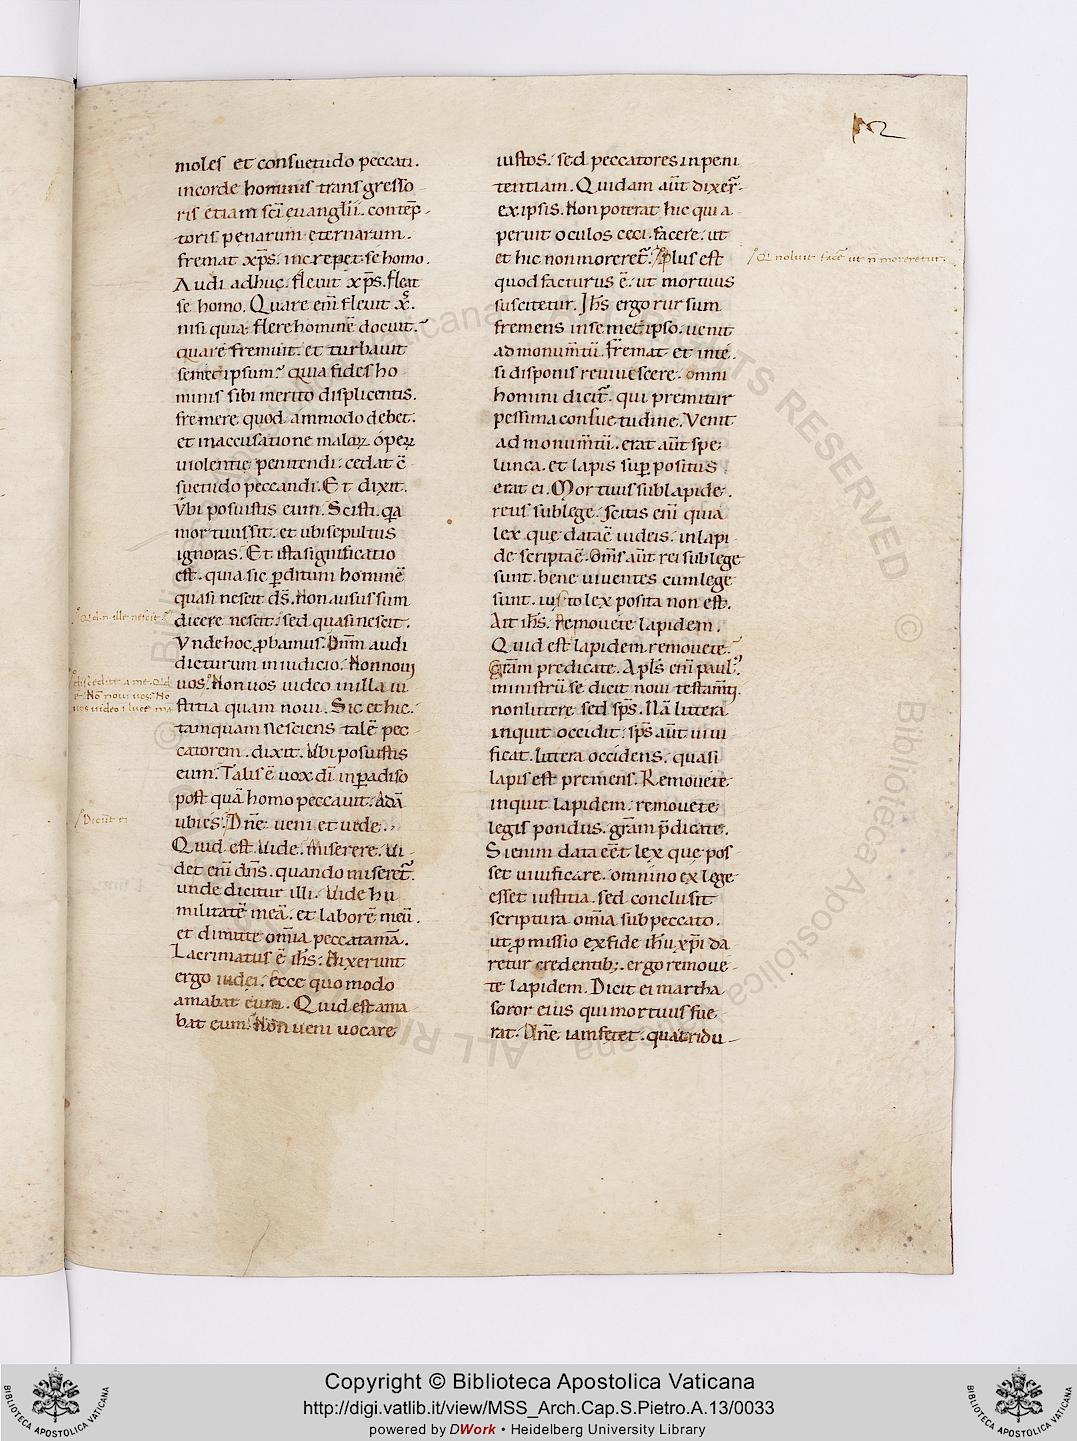 12
moles et consuetudo peccati.
in corde hominis transgresso-
ris etiam scī euanglīi. contēp-
toris penarum eternarum.
fremat xp̄s. increpet se homo.
Audi adhuc. fleuit xp̄s. fleat
se homo. Quare enī fleuit xp̄s.
nisi quia flere hominē docuit.
quare fremuit. et turbauit
semet ipsum? quia fides ho
minis sibi merito displicentis.
fremere quodammodo debet.
et in accusatione maloꝝ operꝝ
uiolentie penitendi. cedat cō
suetudo peccandi. Et dixit.
Vbi posuistis eum. Scisti qa
mortuus sit. et ubi sepultus
ignoras. Et ista significatio
est. quia sic ꝑditum hominē
quasi nescit ds̄. Non ausus sum
dicere nescit. sed quasi nescit.
Vnde hoc ꝓbamus. Dn̄m audi
dicturum in iudicio. Non noui
uos. Non uos uideo in illa iu
stitia quam noui. Sic et hic.
tamquam nesciens talē pec
catorem. dixit. Vbi posuistis
eum. Talis ē uox dī in paradiso
post quā homo peccauit. Adā
ubi es. Dn̄e ueni et uide.
Quid est. Vide. Miserere. Vi-
det enī dn̄s. quando miseret᷑.
unde dicitur illi. Vide hu
militatē meā. et laborē meū.
et dimitte om̄ia peccata mā.
Lacrimatus ē ih̄s. Dixerunt
ergo iudei. Ecce quo modo
amabat eum. Quid est ama
bat eum. Non ueni uocare
iustos. sed peccatores in peni
tentiam. Quidam aūt dixer̄.
ex ipsis. Non poterat hic qui a
peruit oculos ceci. facere. ut
et hic non moreret᷑. Plus est
quod facturus ē. ut mortuus
suscitetur. Ih̄s ergo rursum
fremens in semet ipso. uenit
ad monum̄tū. Fremat et in te.
si disponis reuiuescere. omni
homini dicit᷑. qui premitur
pessima consuetudine. Venit
ad monum̄tū. erat aūt spe
lunca. et lapis suꝑ positus
erat ei. Mortuus sub lapide.
reus sub lege. scitis enī quia
lex que data ē iudeis. in lapi-
de scripta ē. Om̄s aūt rei sub lege
sunt. bene uiuentes cum lege
sunt. iusto lex posita non est.
Ait ih̄s. Remouete lapidem.
Quid est lapidem remouete.
Grām predicate. Apl̄s enī paul᷒.
ministrū se dicit noui testam̄ti.
non littere sed sp̄s. Nā littera
inquit occidit. sp̄s aūt uiui
ficat. littera occidens. quasi
lapis est premens. Remouete
inquit lapidem. remouete
legis pondus. grām p̄dicate.
Si enim data eēt lex que pos-
set uiuificare. omnino ex lege
esset iustitia. sed conclusit
scriptura om̄ia sub peccato.
ut ꝓmissio ex fide ih̄u xp̄i da
retur credentib;. ergo remoue-
te lapidem. Dicit ei martha
soror eius qui mortuus fue
rat. Dn̄e iam fetet. quatridu-
Q noluit facē ut n̄ moreretur.
Dicūt ei
Copyright © Biblioteca Apostolica Vaticana
http://digi.vatlib.it/view/MSS_Arch.Cap.S.Pietro.A.13/0033
powered by DWork • Heidelberg University Library
BIBLIOTECA APOSTOLICA VATICANA
BIBLIOTECA APOSTOLICA VATICANA